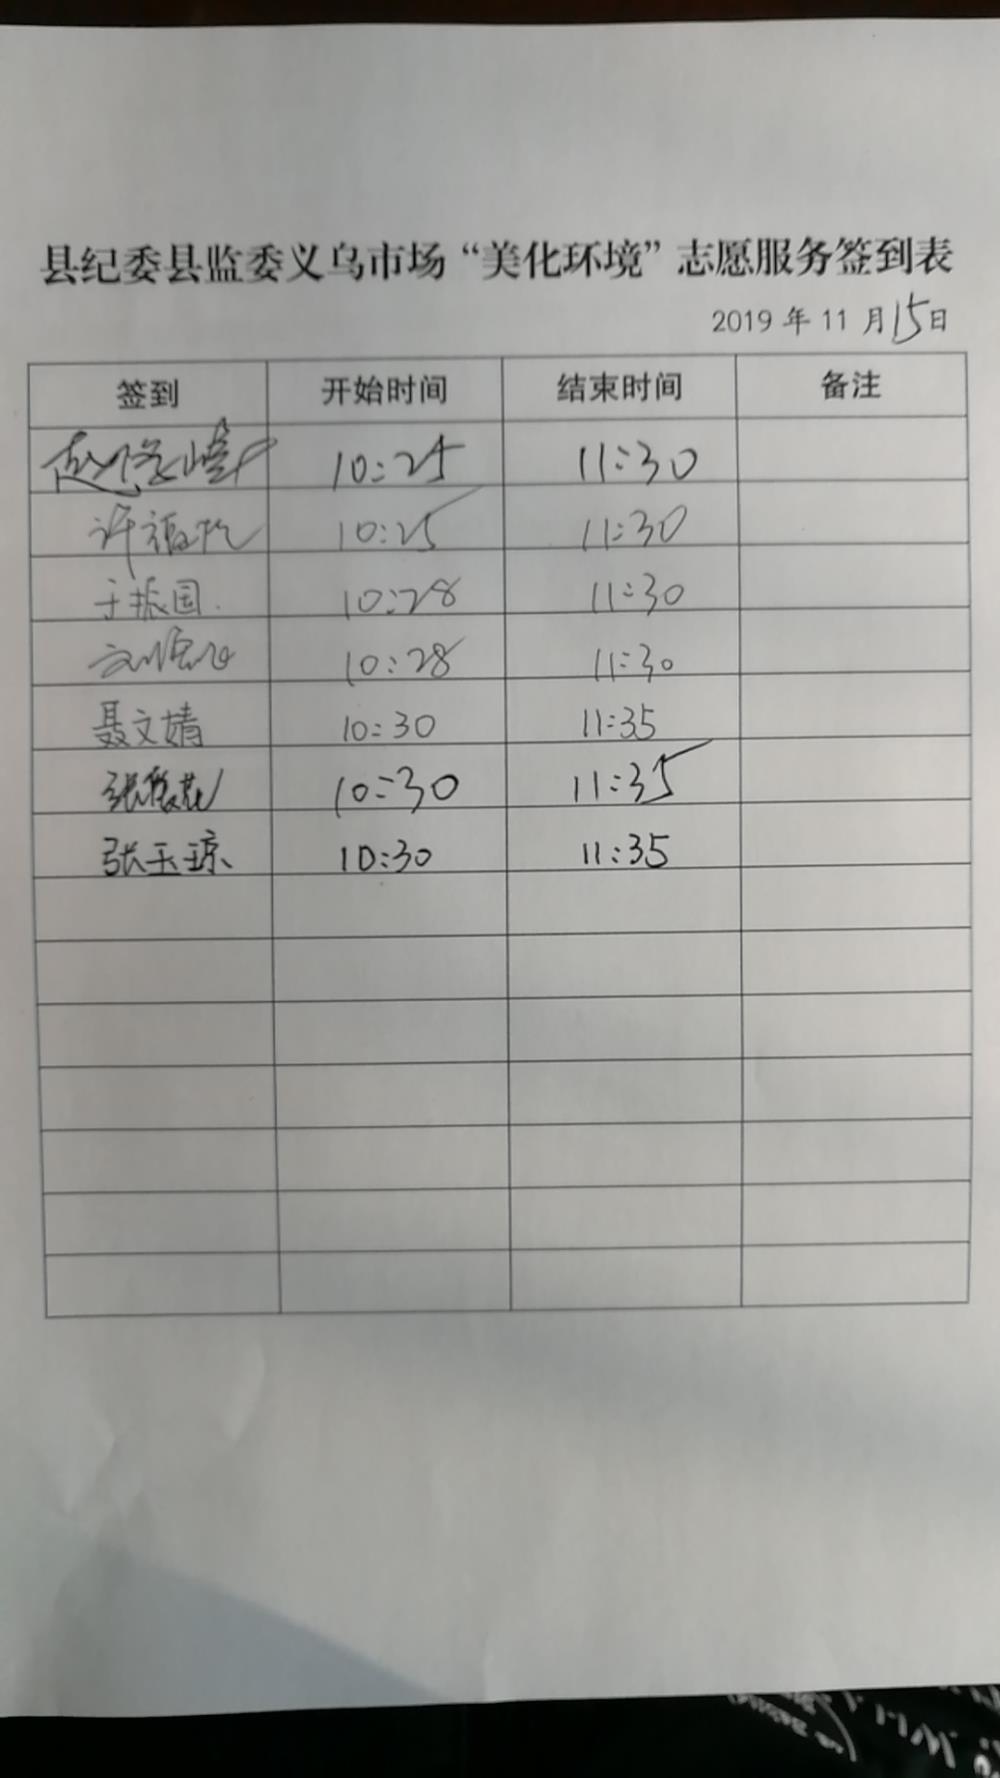 县纪委县监委义乌市场“美化环境”志愿服务签到表
2019 年 11 月15日
签到 开始时间 结束时间 备注
赵 峰 10:25 11:30
许福 10:25 11:30
于振国. 10:28 11:30
刘 10:28 11:30
聂文婧 10:30 11:35
张 10:30 11:35
张玉琼 10:30 11:35